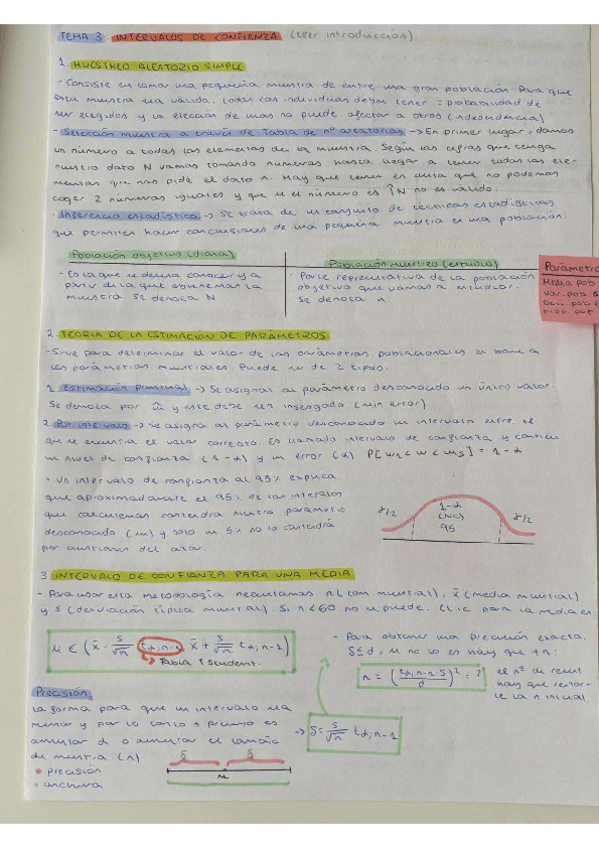 TEMA 3: INTERVALOS DE CONFIANZA (Leer introducción)
1. MUESTREO ALEATORIO SIMPLE
- Consiste en tomar una pequeña muestra de entre una gran población. Para que
esta muestra sea válida, todos los individuos deben tener = probabilidad de
ser elegidos y la elección de unos no puede afectar a otros (independencia)
- Selección muestra a través de Tabla de nº aleatorios → En primer lugar, damos
un número a todos los elementos de la muestra. Según las cifras que tenga
nuestro dato N vamos tomando números hasta llegar a tener todos los ele-
mentos que nos pide el dato n. Hay que tener en cuenta que no podemos
coger 2 números iguales y que si el número es N no es válido.
· Inferencia estadística → Se trata de un conjunto de técnicas estadísticas
que permiten hacer conclusiones de una pequeña muestra en una población.
Población objetivo (diana)
- Es la que se desea conocer y a
partir de la que obtenemos la
muestra. Se denota N
Población muestreo (estudio)
- Parte representativa de la población
objetivo que vamos a estudiar.
Se denota n
Parámetro
Media pob
var. pob
Desv. pob
prop. pob
2. TEORIA DE LA ESTIMACIÓN DE PARÁMETROS
- Sirve para determinar el valor de los parámetros poblacionales en base a
los parámetros muestrales. Puede ser de 2 tipos.
1. Estimación puntual → Se asigna al parámetro desconocido un único valor.
Se denota por ŵ y este debe ser insesgado (min error)
2. Por intervalo → Se asigna al parámetro desconocido un intervalo entre el
que se encuentra el valor correcto. Es llamado intervalo de confianza y contien
un nivel de confianza (1-α) y un error (α) P[w₁ < w < w₂] = 1-α
• Un intervalo de confianza al 95% explica
que aproximadamente el 95% de los intervalos
que calculemos contendrá nuestro parámetro
desconocido (w) y solo un 5% no lo contendrá
por cuestiones del azar.
α/2
1-α
(NC)
95
α/2
3. INTERVALO DE CONFIANZA PARA UNA MEDIA
- Para usar esta metodología necesitamos n (tam muestral), x̄ (media muestral)
y s (desviación típica muestral). Si n<60 no se puede. El IC para la media es:
μ ∈ (x̄ - s/√n tα;n-1, x̄ + s/√n tα;n-1)
→ Tabla t Student.
- Para obtener una precisión exacta,
δ≤d, si no lo es hay que tn:
n = (tα;n-1·s/d)² = ?
el nº de result
hay que restar-
le la n inicial
Precisión
La forma para que un intervalo sea
menor y por lo tanto + preciso es
aumentar α o aumentar el tamaño
de muestra (n)
→ δ = s/√n tα;n-1
• precisión
• anchura
δ
δ
μ